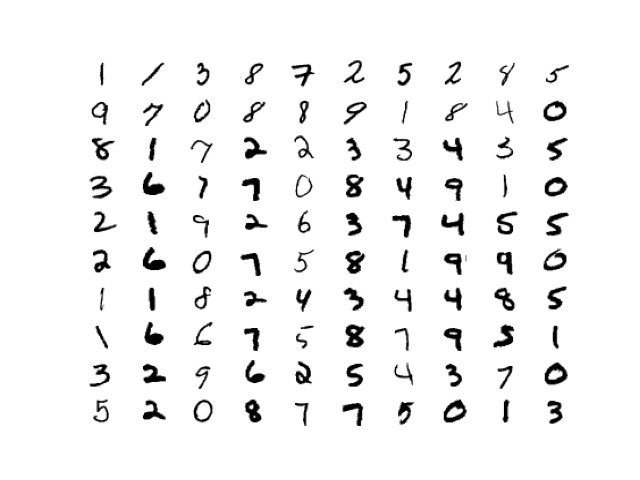 1 1 3 8 7 2 5 2 8 5
9 7 0 8 8 9 1 8 4 0
8 1 7 2 2 3 3 4 3 5
3 6 7 7 0 8 4 9 1 0
2 1 9 2 6 3 7 4 5 5
2 6 0 7 5 8 1 9 9 0
1 1 8 2 4 3 4 4 8 5
1 6 6 7 5 8 7 9 5 1
3 2 9 6 2 5 4 3 7 0
5 2 0 8 7 7 5 0 1 3